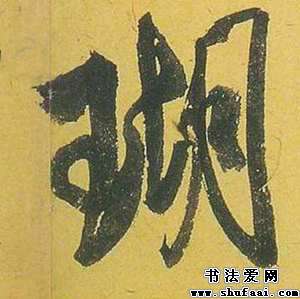 瑚
书法爱网
www.shufaai.com